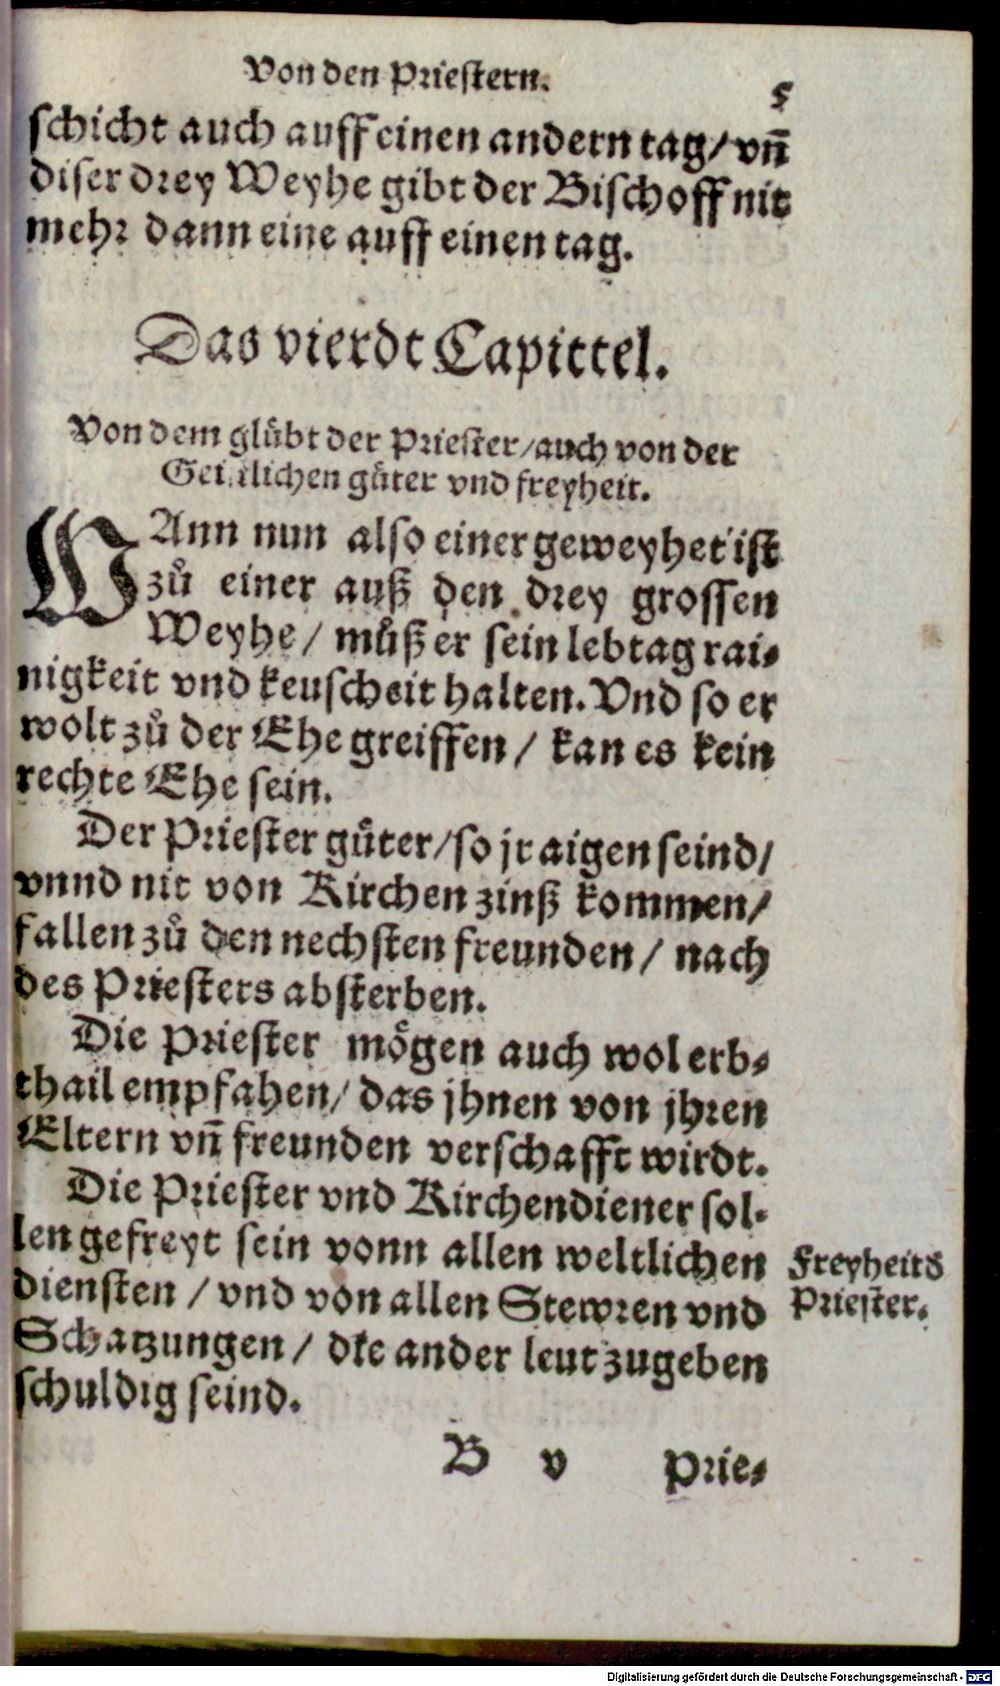 Von den Priestern. 5
schicht auch auff einen andern tag/ vn̄
diser drey Weyhe gibt der Bischoff nit
mehr dann eine auff einen tag.
Das vierdt Capittel.
Von dem glübt der Priester/ auch von der
Geistlichen güter vnd freyheit.
WAnn nun also einer geweyhet ist
zů einer auß den drey grossen
Weyhe/ můß er sein lebtag rai-
nigkeit vnd keuscheit halten. Vnd so er
wolt zů der Ehe greiffen/ kan es kein
rechte Ehe sein.
Der Priester gůter/ so jr aigen seind/
vnnd nit von Kirchen zinß kommen/
fallen zů den nechsten freunden/ nach
des Priesters absterben.
Die Priester mögen auch wol erb-
thail empfahen/ das jhnen von jhren
Eltern vn̄ freunden verschafft wirdt.
Die Priester vnd Kirchendiener sol-
len gefreyt sein vonn allen weltlichen
diensten/ vnd von allen Stewren vnd
Schatzungen/ dke ander leut zugeben
schuldig seind.
Freyheit d
Priester.
B v Prie-
Digitalisierung gefördert durch die Deutsche Forschungsgemeinschaft - DFG